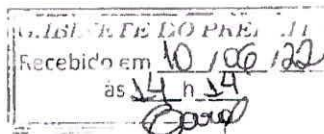 GABINETE DO PREF
Recebido em 10 / 06 / 22
às 14 h 14